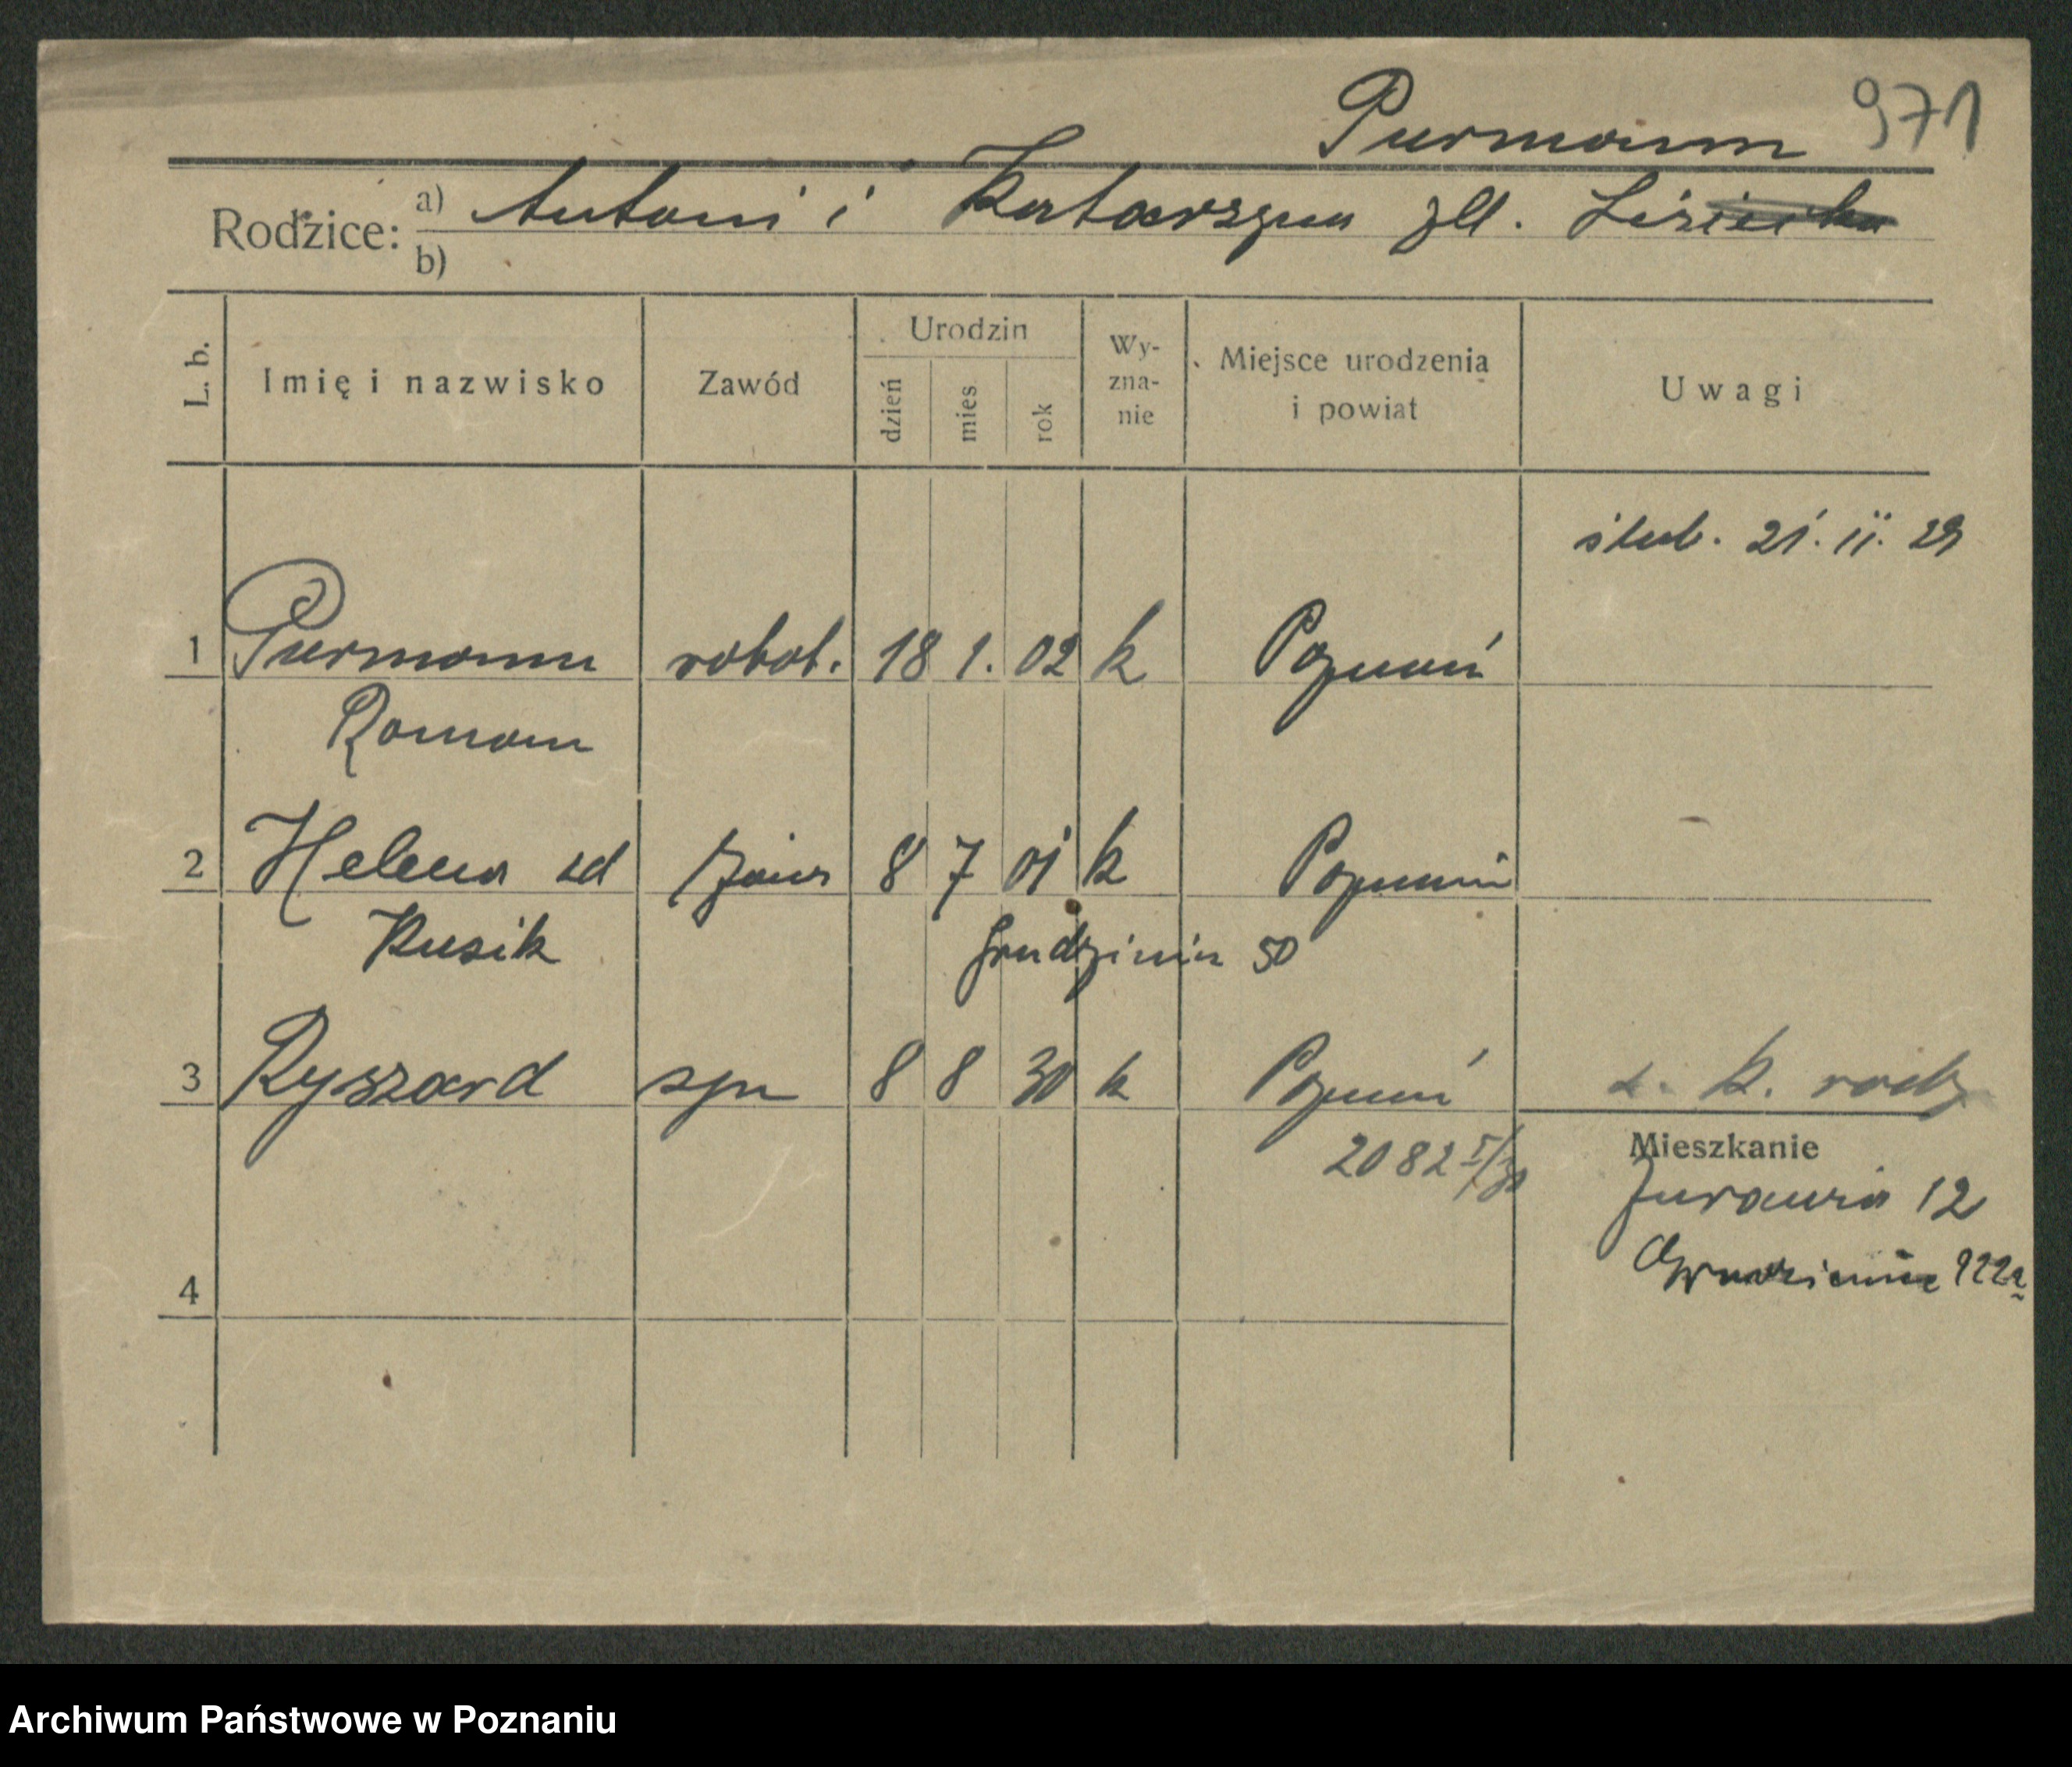 Purmann 971
Rodzice: a) Antoni i Katarzyna
b)
L. b. Imię i nazwisko Zawód Urodzin dzień mies rok Wy-zna-nie Miejsce urodzenia i powiat Uwagi
ślub. 21. II. 29
1 Purmann robot. 18 1. 02 k Poznań
Roman
2 Helena zd żona 8 7 01 k Poznań
Kusik
50
3 Ryszard syn 8 8 30 k Poznań z. k. rodz
2082
Mieszkanie
Żurawia 12
4
Archiwum Państwowe w Poznaniu